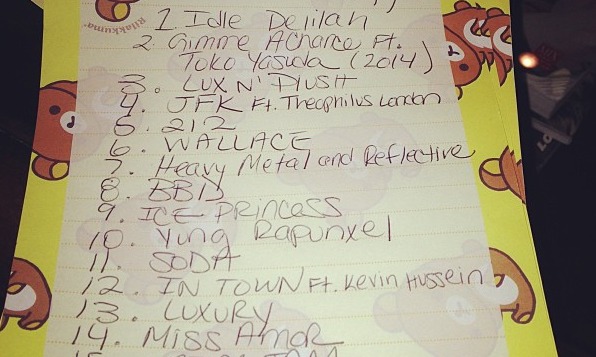 Rilakkuma
1 Idle Delilah
2. Gimme A Chance Ft.
Toko Yasuda (2014)
3. LUX N' PLUSH
4. JFK Ft. Theophilus London
5. 212
6. WALLACE
7. Heavy Metal and Reflective
8. BBD
9. ICE PRINCESS
10. Yung Rapunxel
11. SODA
12. IN TOWN Ft. Kevin Hussein
13. LUXURY
14. MISS AMOR